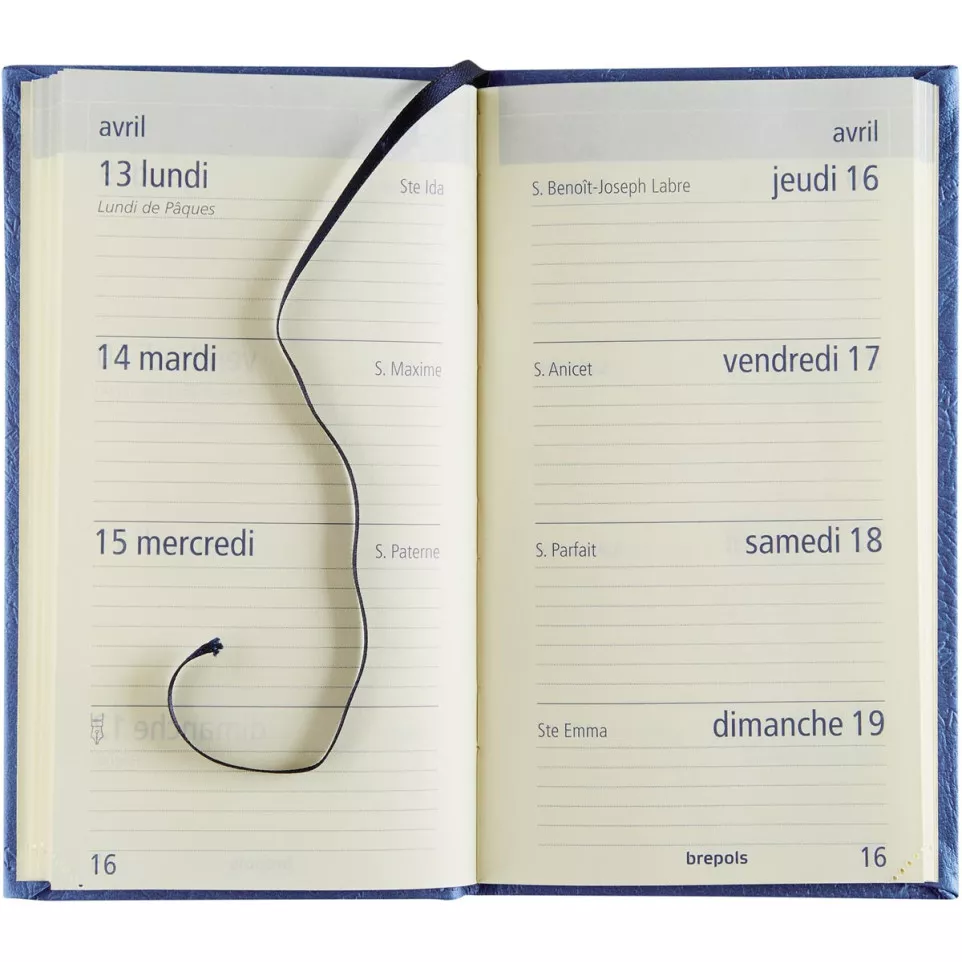 avril
13 lundi Ste Ida
Lundi de Pâques
14 mardi S. Maxime
15 mercredi S. Paterne
16
avril
S. Benoît-Joseph Labre jeudi 16
S. Anicet vendredi 17
S. Parfait samedi 18
Ste Emma dimanche 19
brepols 16